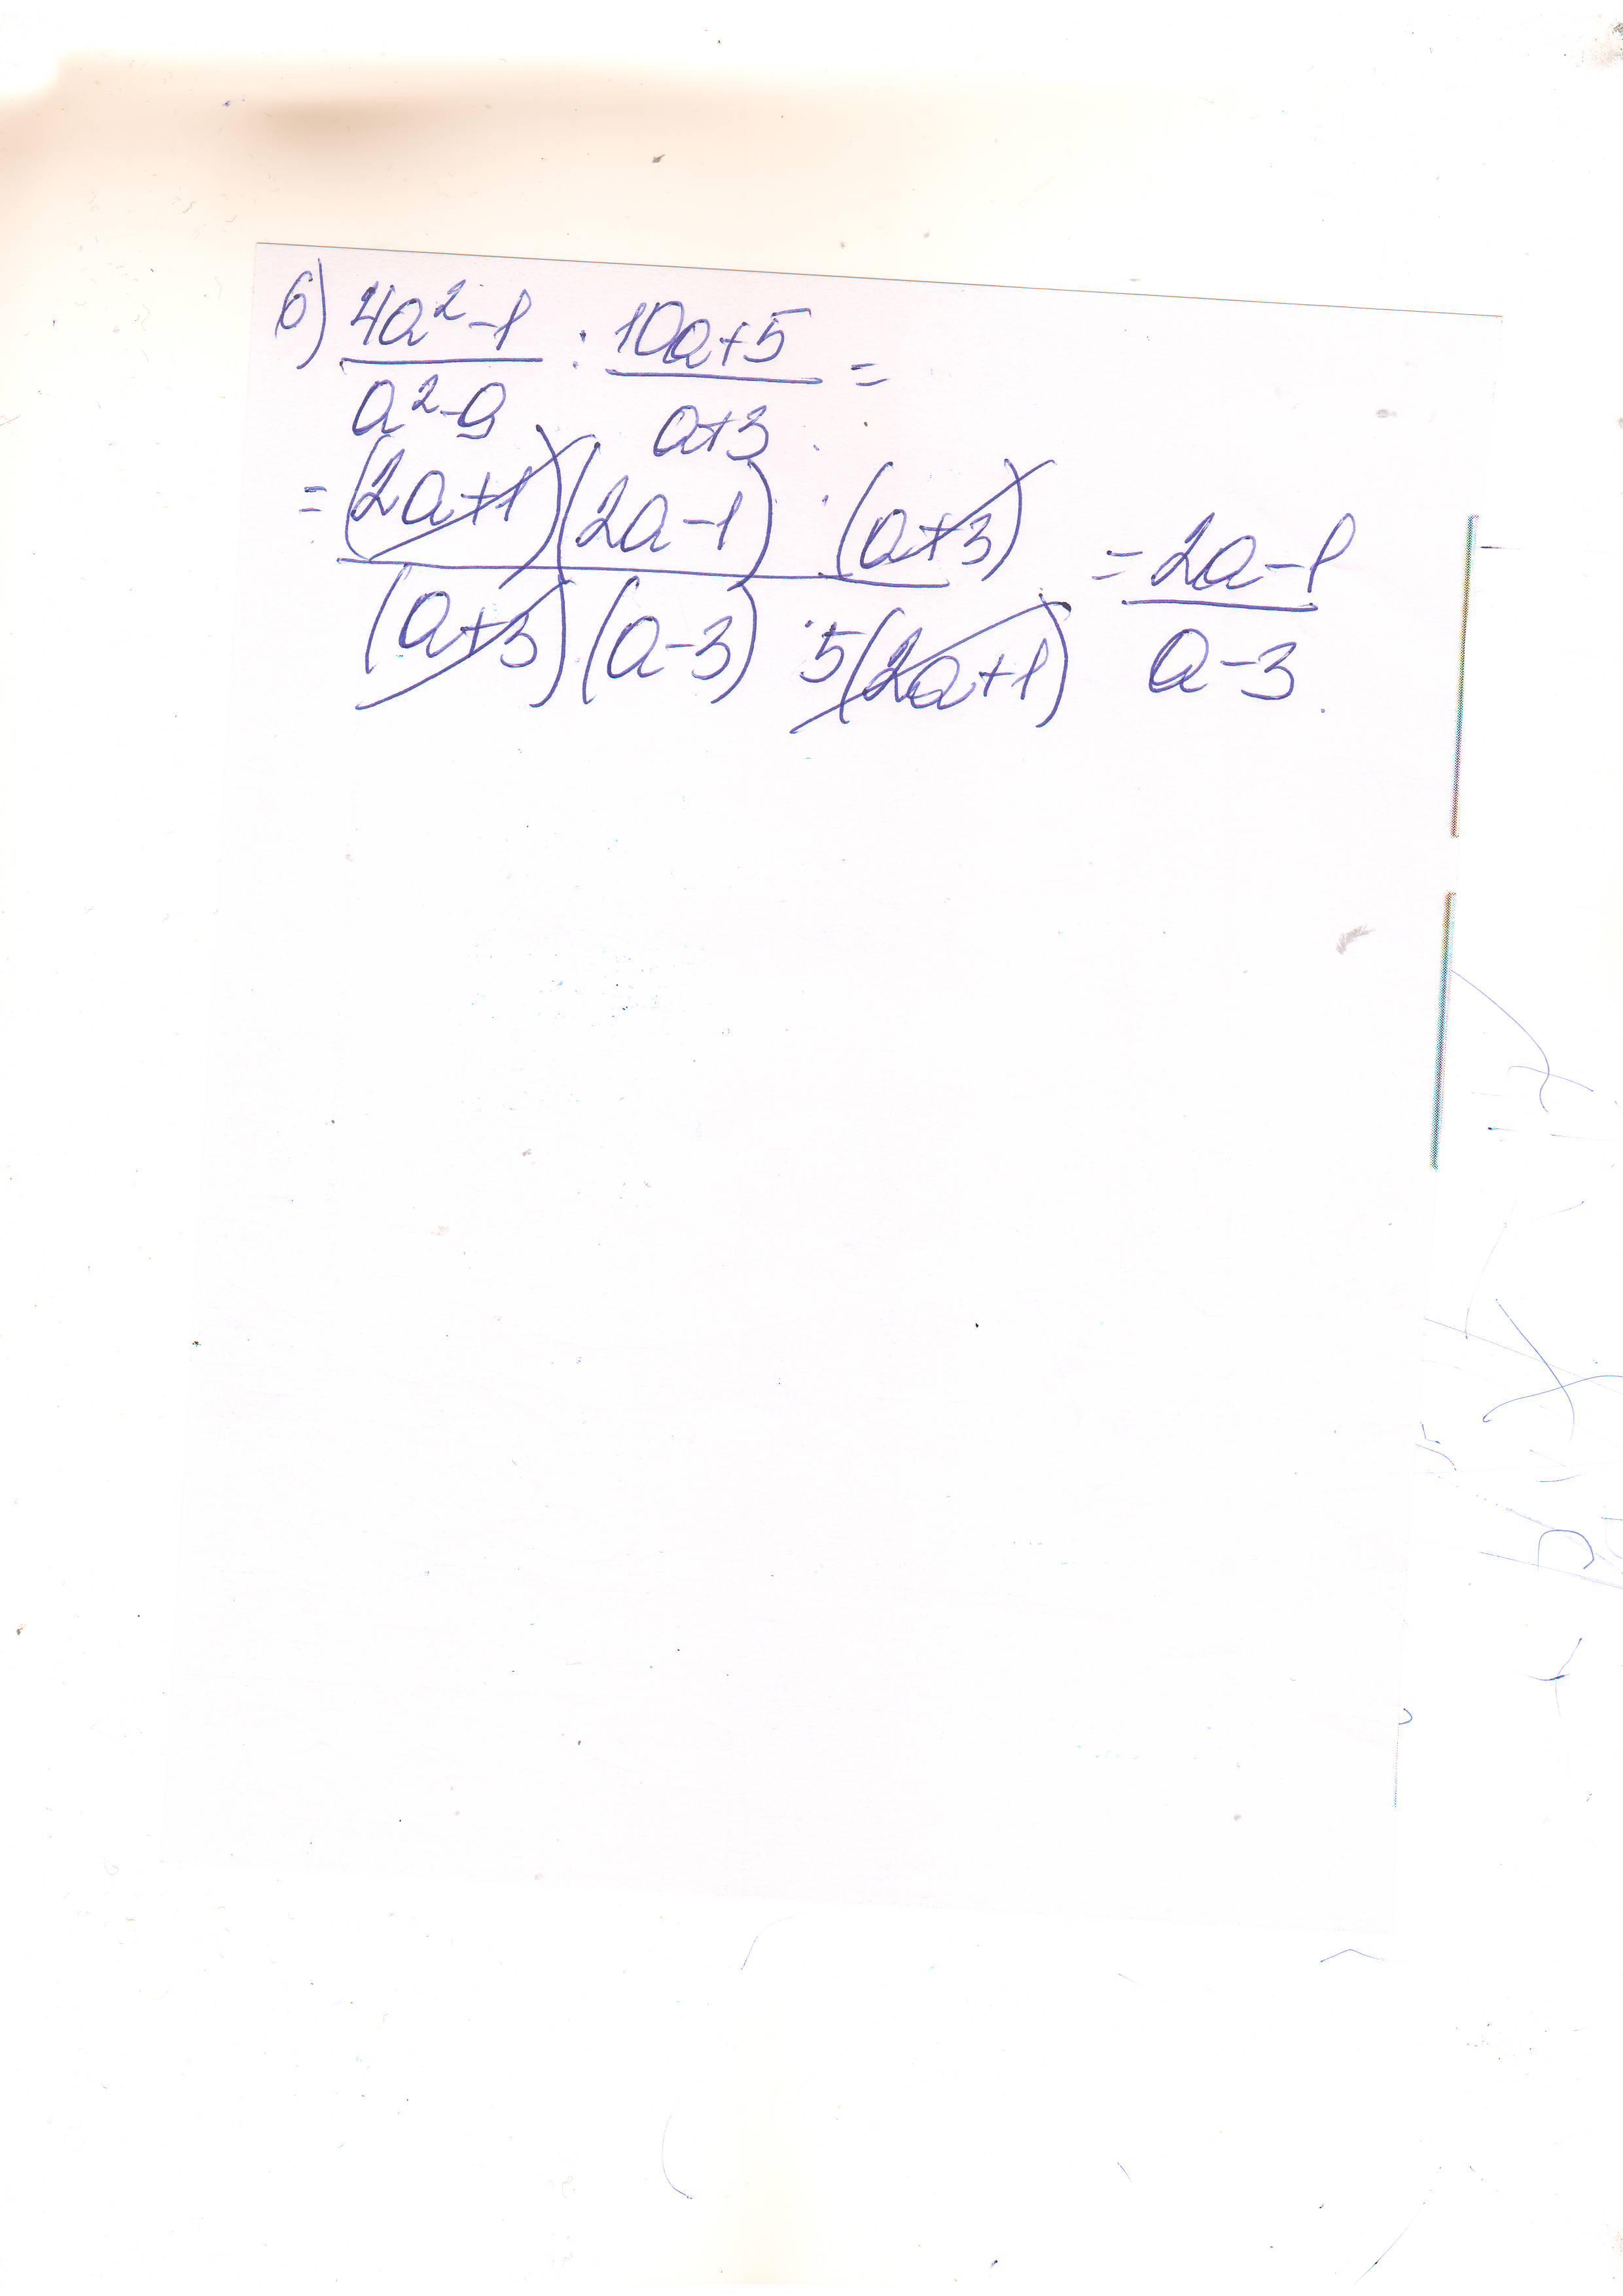 б) (4a²-1)/(a²-9) : (10a+5)/(a+3) =
= ((2a+1)(2a-1) · (a+3))/((a+3)(a-3) · 5(2a+1)) = (2a-1)/(a-3)